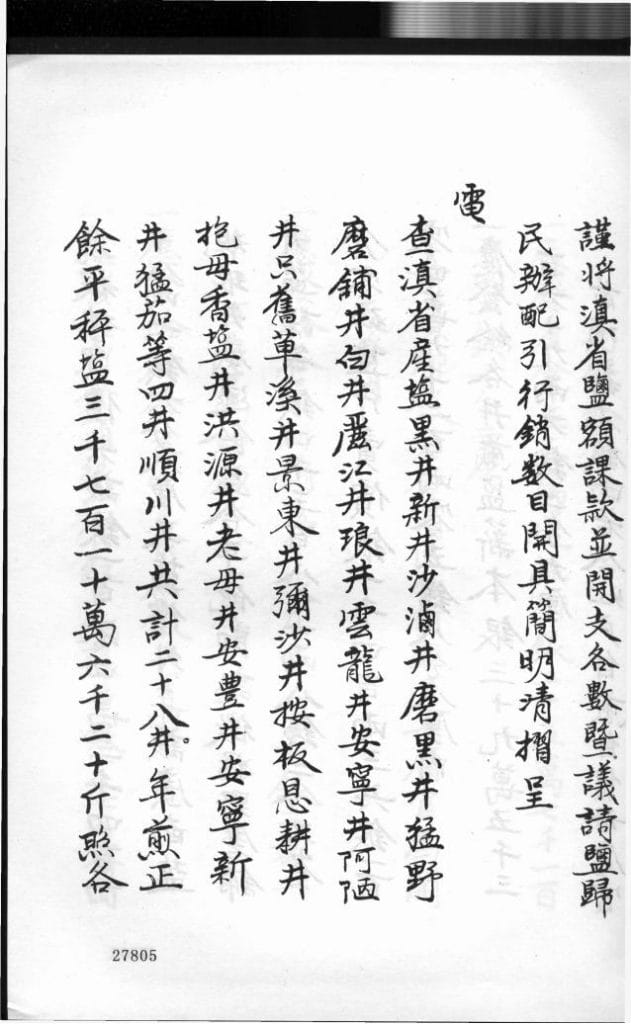 謹将滇省鹽額課款並開支各數暨議請鹽歸
民辦配引行銷数目開具簡明清摺呈
電
查滇省産塩黒井新井沙滷井磨黒井猛野
井磨鋪井白井麗江井琅井雲龍井安寧井阿陋
井只舊草溪井景東井彌沙井按板恩耕井
抱母香塩井洪源井老母井安豊井安寧新
井猛茄等四井順川井共計二十八井。年煎正
餘平秤塩三千七百一十萬六千二十斤照各
27805